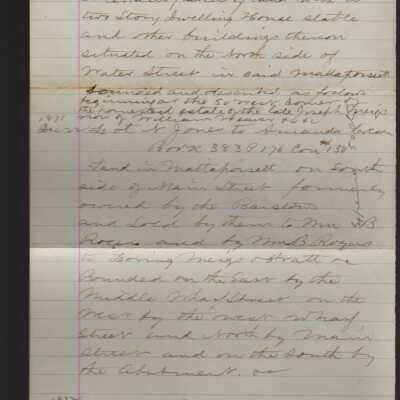 two Story dwelling House stable
and other buildings thereon
situated on the North side of
Water Street in said Mattapoisett
bounded and described as follows
beginning at the So West corner of
the homestead estate of the late Joseph Meigs
now of William
1871
Jun Lot N Jones to Amanda
Book 383 P 176 Con $ 150
Land in Mattapoisett on South
side of Main Street formerly
owned by the Barstow
and Sold by them to Wm B
Rogers and by Wm B Rogers
to Loring Meigs
Bounded on the East by the
Middle Wharf Street on the
West by the West Wharf
Street and North by Main
Street and on the South by
the Abutment.